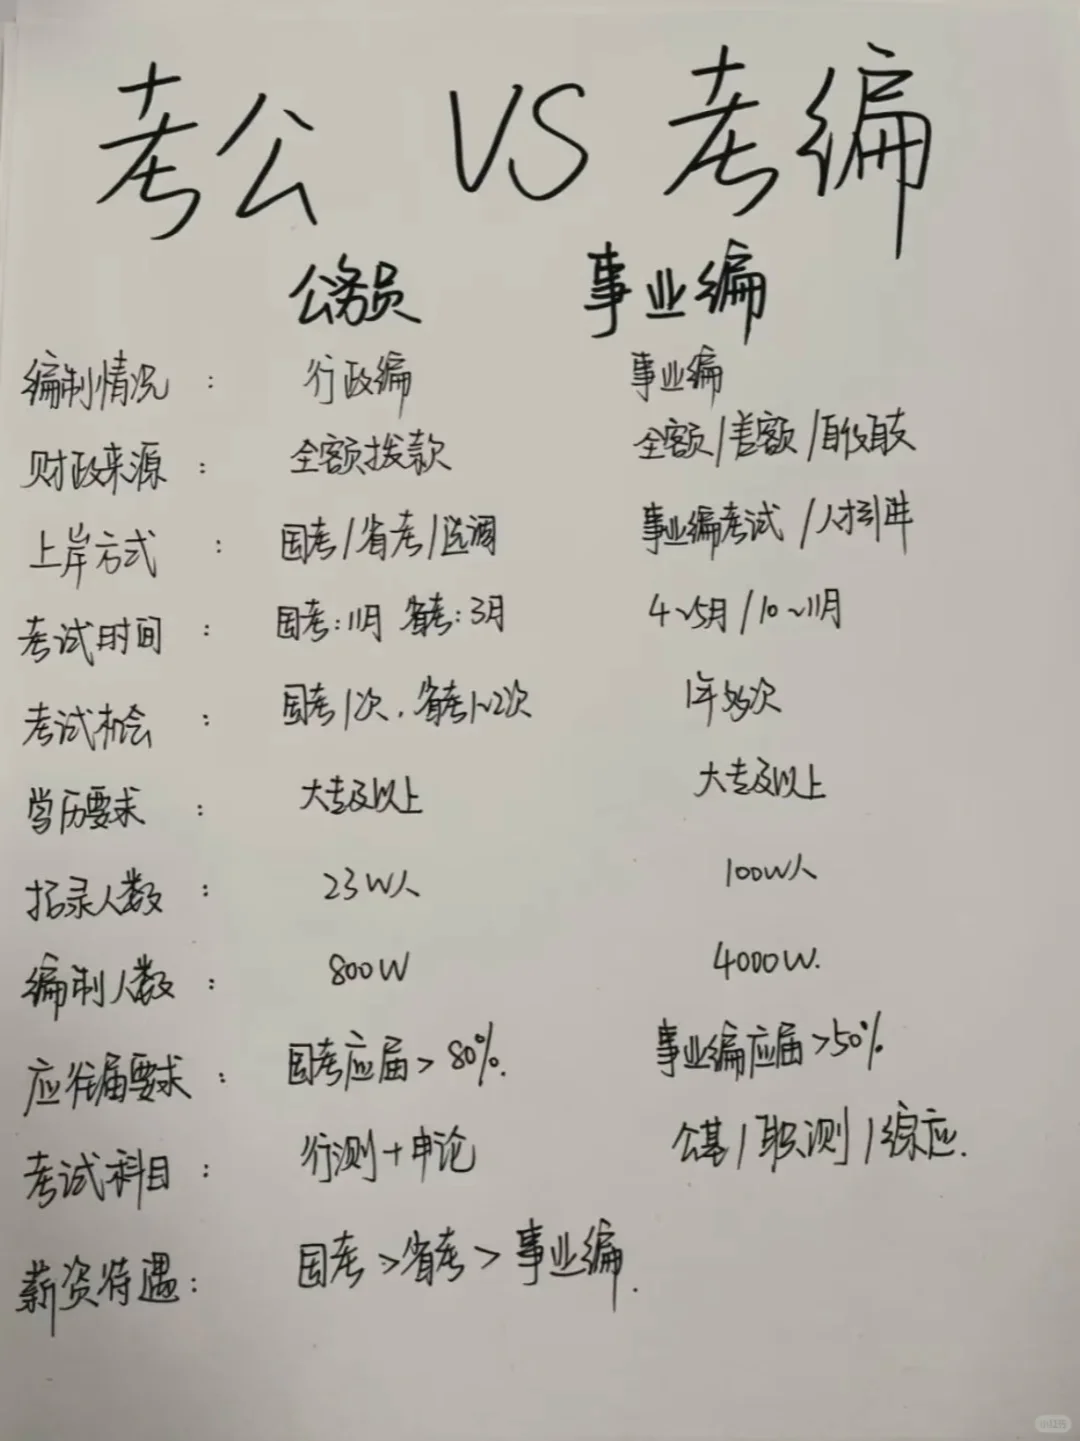 考公 VS 考编
公务员 事业编
编制情况： 行政编 事业编
财政来源： 全额拨款 全额/差额/自收自支
上岸方式： 国考/省考/选调 事业编考试/人才引进
考试时间： 国考：11月 省考：3月 4~5月/10~11月
考试机会： 国考1次，省考1~2次 1年多次
学历要求： 大专及以上 大专及以上
招录人数： 23W人 100W人
编制人数： 800W 4000W.
应往届要求： 国考应届>80%. 事业编应届>50%
考试科目： 行测+申论 公基/职测/综应.
薪资待遇： 国考>省考>事业编.
小红书